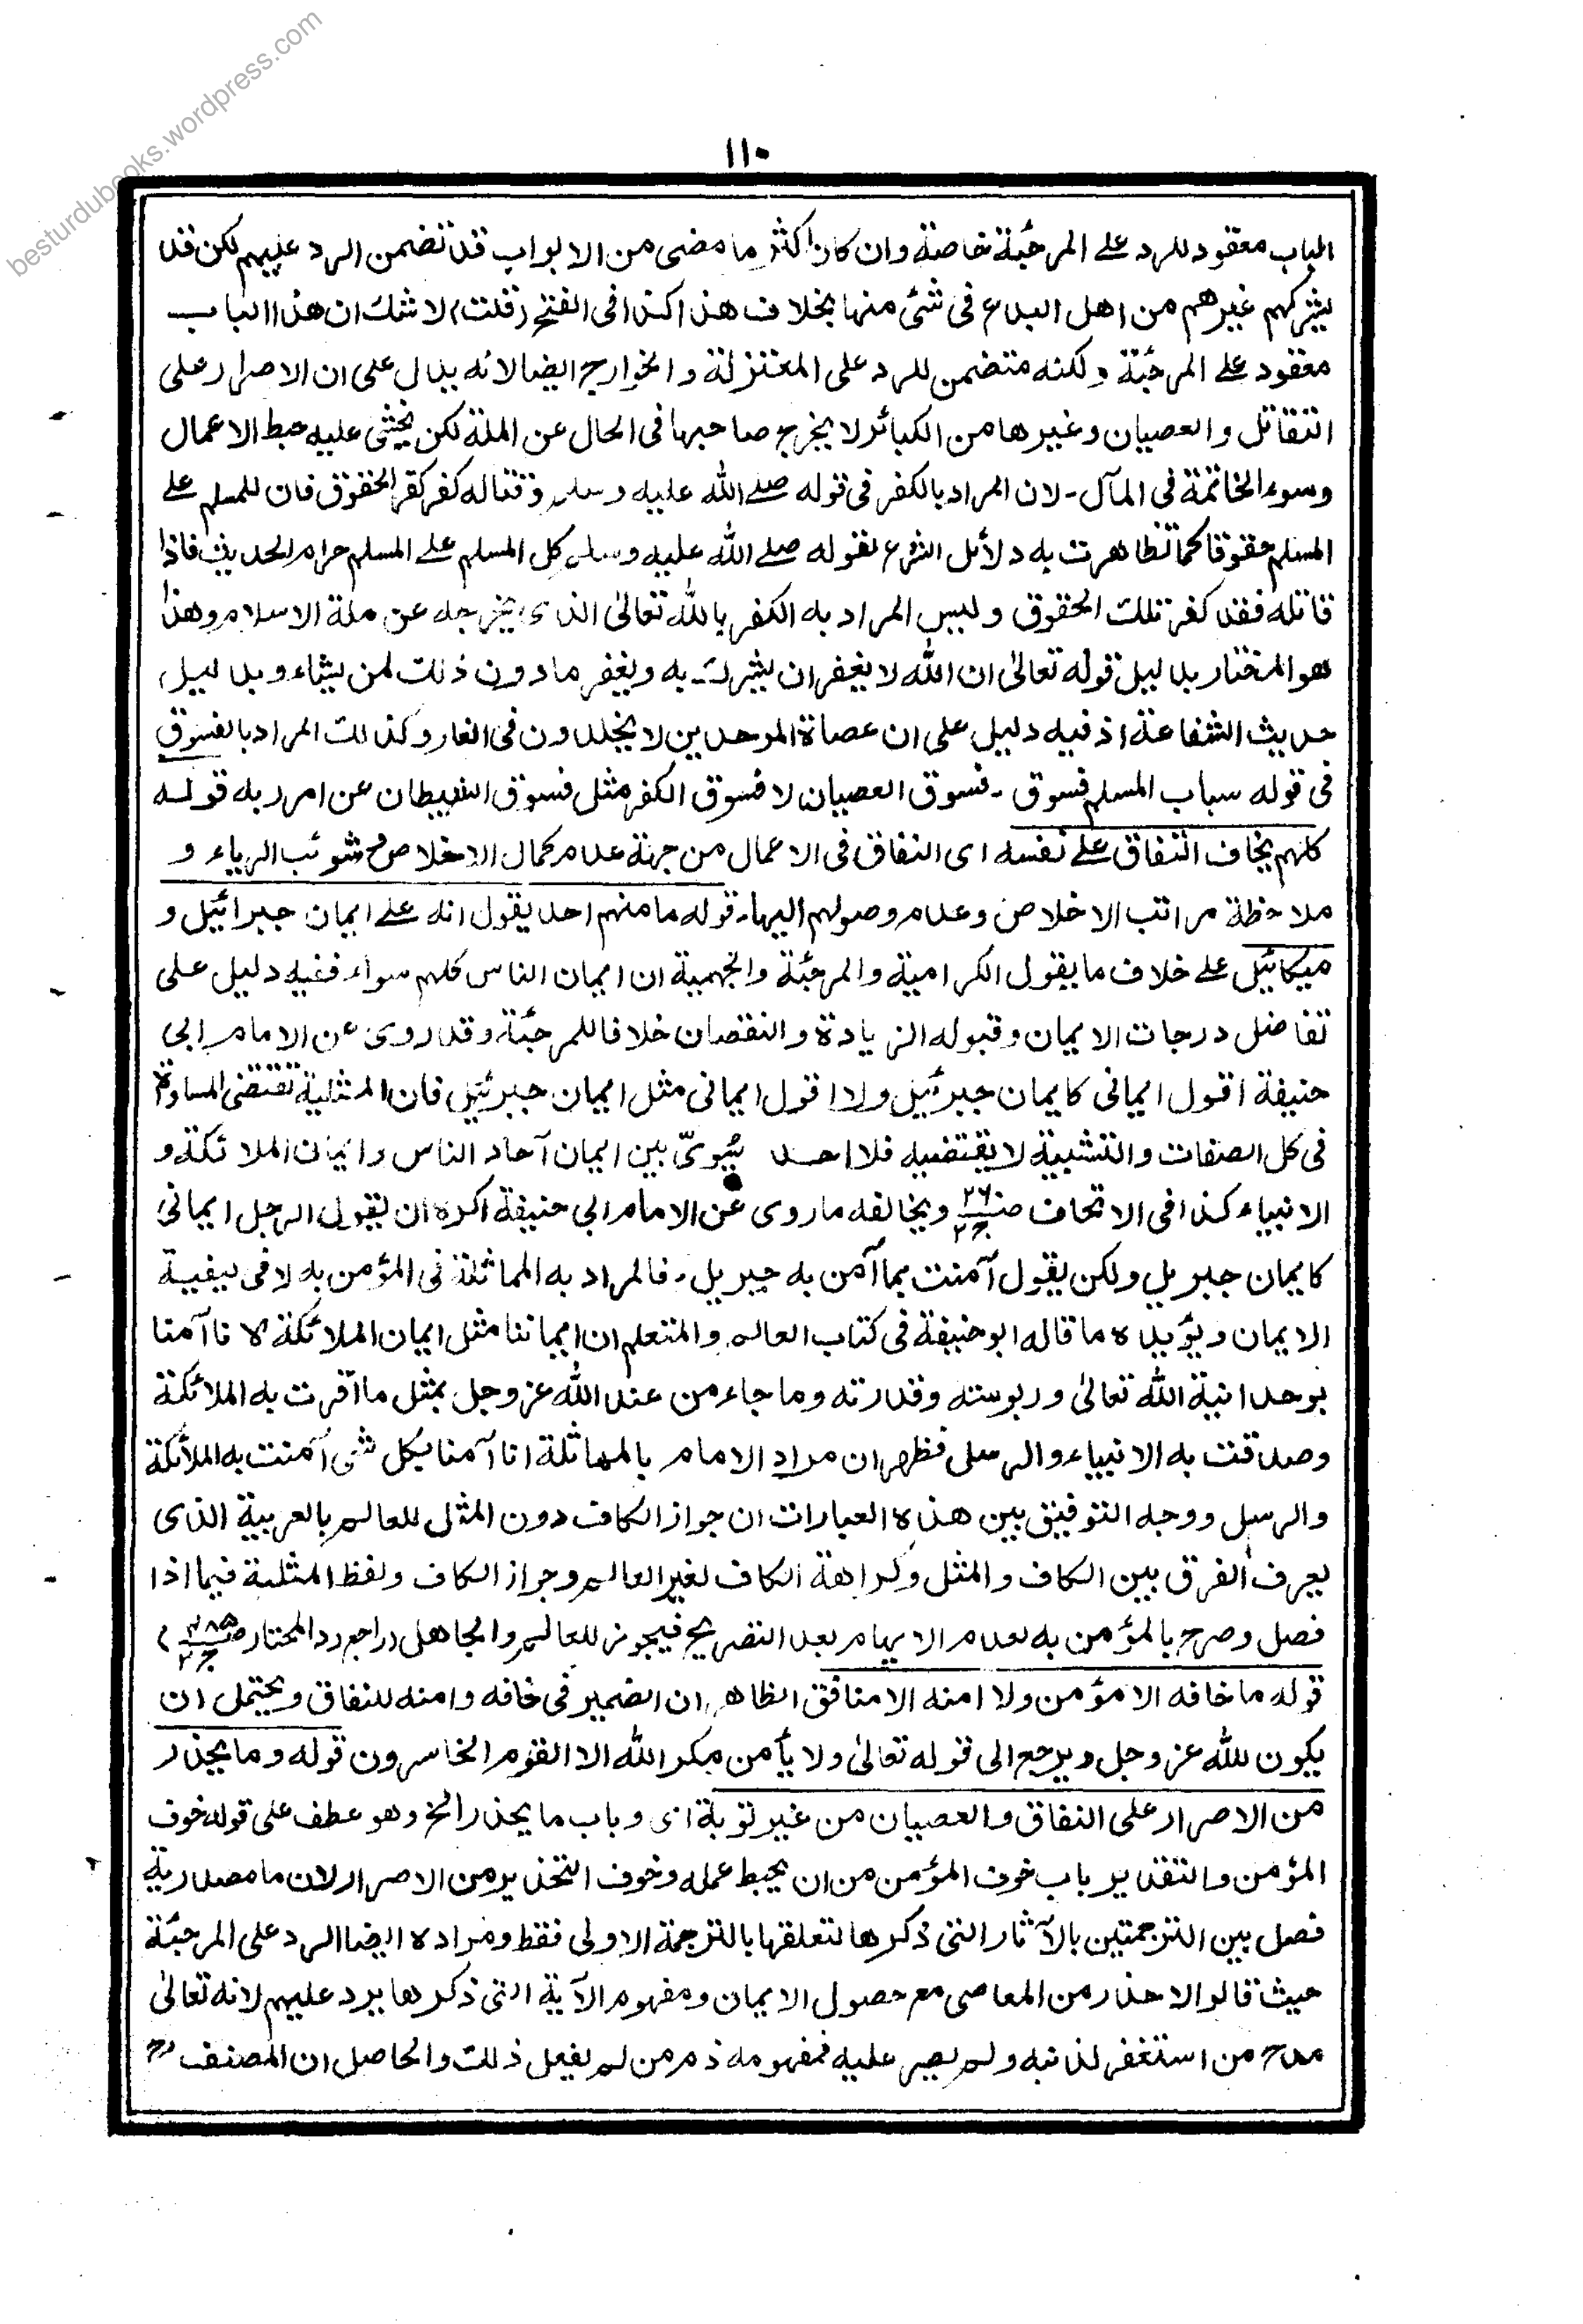 besturdubooks.wordpress.com
١١٠
الباب معقود للرد علے المرجئة خاصة وان كان اكثر ما مضى من الابواب قد تضمن الرد عليهم لكن قد
يشركهم غيرهم من اهل البدع فى شئ منها بخلاف هذا كذا فى الفتح (قلت) لا شك ان هذا الباب
معقود علے المرجئة ولكنه متضمن للرد على المعتزلة والخوارج ايضا لانه يدل على ان الاصرار على
التقاتل والعصيان وغيرها من الكبائر لا يخرج صاحبها فى الحال عن الملة لكن يخشى عليه حبط الاعمال
وسوء الخاتمة فى المآل - لان المراد بالكفر فى قوله صلے الله عليه وسلم وقتاله كفر كفر الحقوق فان للمسلم علے
المسلم حقوقا كما تظاهرت به دلائل الشرع لقوله صلے الله عليه وسلم كل المسلم علے المسلم حرام الحديث فاذا
قاتله فقد كفر تلك الحقوق وليس المراد به الكفر بالله تعالىٰ الذى يخرجه عن ملة الاسلام وهذا
هو المختار بدليل قوله تعالىٰ ان الله لا يغفر ان يشرك به ويغفر ما دون ذلك لمن يشاء وبدليل
حديث الشفاعة اذ فيه دليل على ان عصاة الموحدين لا يخلدون فى النار وكذلك المراد بالفسوق
فى قوله سباب المسلم فسوق - فسوق العصيان لا فسوق الكفر مثل فسوق الشيطان عن امر ربه قوله
كلهم يخاف النفاق علے نفسه اى النفاق فى الاعمال من جهة عدم كمال الاخلاص وشوئب الرياء و
ملاحظة مراتب الاخلاص وعدم وصولهم اليها - قوله ما منهم احد يقول انه علے ايمان جبرائيل و
ميكائيل علے خلاف ما يقول الكرامية والمرجئة والجهمية ان ايمان الناس كلهم سواء ففيه دليل على
تفاضل درجات الايمان وقبوله الزيادة والنقصان خلافا للمرجئة وقد روى عن الامام ابى
حنيفة اقول ايمانى كايمان جبرئيل ولا اقول ايمانى مثل ايمان جبرئيل فان المثلية تقتضى المساوة
فى كل الصفات والتشبيه لا يقتضيه فلا احد يسوىّ بين ايمان آحاد الناس وايمان الملائكة و
الانبياء كذا فى الاتحاف صـ ٢٦ ج ٢ ويخالفه ما روى عن الامام ابى حنيفة اكره ان يقول الرجل ايمانى
كايمان جبريل ولكن يقول آمنت بما آمن به جبريل - فالمراد به المماثلة فى المؤمن به لا فى كيفية
الايمان ويؤيده ما قاله ابو حنيفة فى كتاب العالم والمتعلم ان ايماننا مثل ايمان الملائكة لانا آمنا
بوحدانية الله تعالىٰ وربوبيته وقدرته وما جاء من عند الله عز وجل بمثل ما اقرت به الملائكة
وصدقت به الانبياء والرسل فظهر ان مراد الامام بالمماثلة انا آمنا بكل شئ آمنت به الملائكة
والرسل ووجه التوفيق بين هذه العبارات ان جواز الكاف دون المثل للعالم بالعربية الذى
يعرف الفرق بين الكاف والمثل وكراهة الكاف لغير العالم وجواز الكاف ولفظ المثلية فيما اذا
فصل وصرح بالمؤمن به لعدم الايهام بعد التصريح فيجوز للعالم والجاهل (راجع رد المحتار صـ ٣٨٥ ج ٢)
قوله ما خافه الا مؤمن ولا امنه الا منافق الظاهر ان الضمير فى خافه وامنه للنفاق ويحتمل ان
يكون لله عز وجل ويرجع الى قوله تعالىٰ ولا يأمن مكر الله الا القوم الخاسرون قوله وما يحذر
من الاصرار على النفاق والعصيان من غير توبة اى وباب ما يحذر الخ وهو عطف على قوله خوف
المؤمن والتقدير باب خوف المؤمن من ان يحبط عمله وخوف التحذير من الاصرار لان ما مصدرية
فصل بين الترجمتين بالآثار التى ذكرها لتعلقها بالترجمة الاولى فقط ومراده ايضا الرد على المرجئة
حيث قالوا لا حذر من المعاصى مع حصول الايمان ومفهوم الآية التى ذكرها يرد عليهم لانه تعالىٰ
مدح من استغفر لذنبه ولم يصر عليه فمفهومه ذم من لم يفعل ذلك والحاصل ان المصنف رح